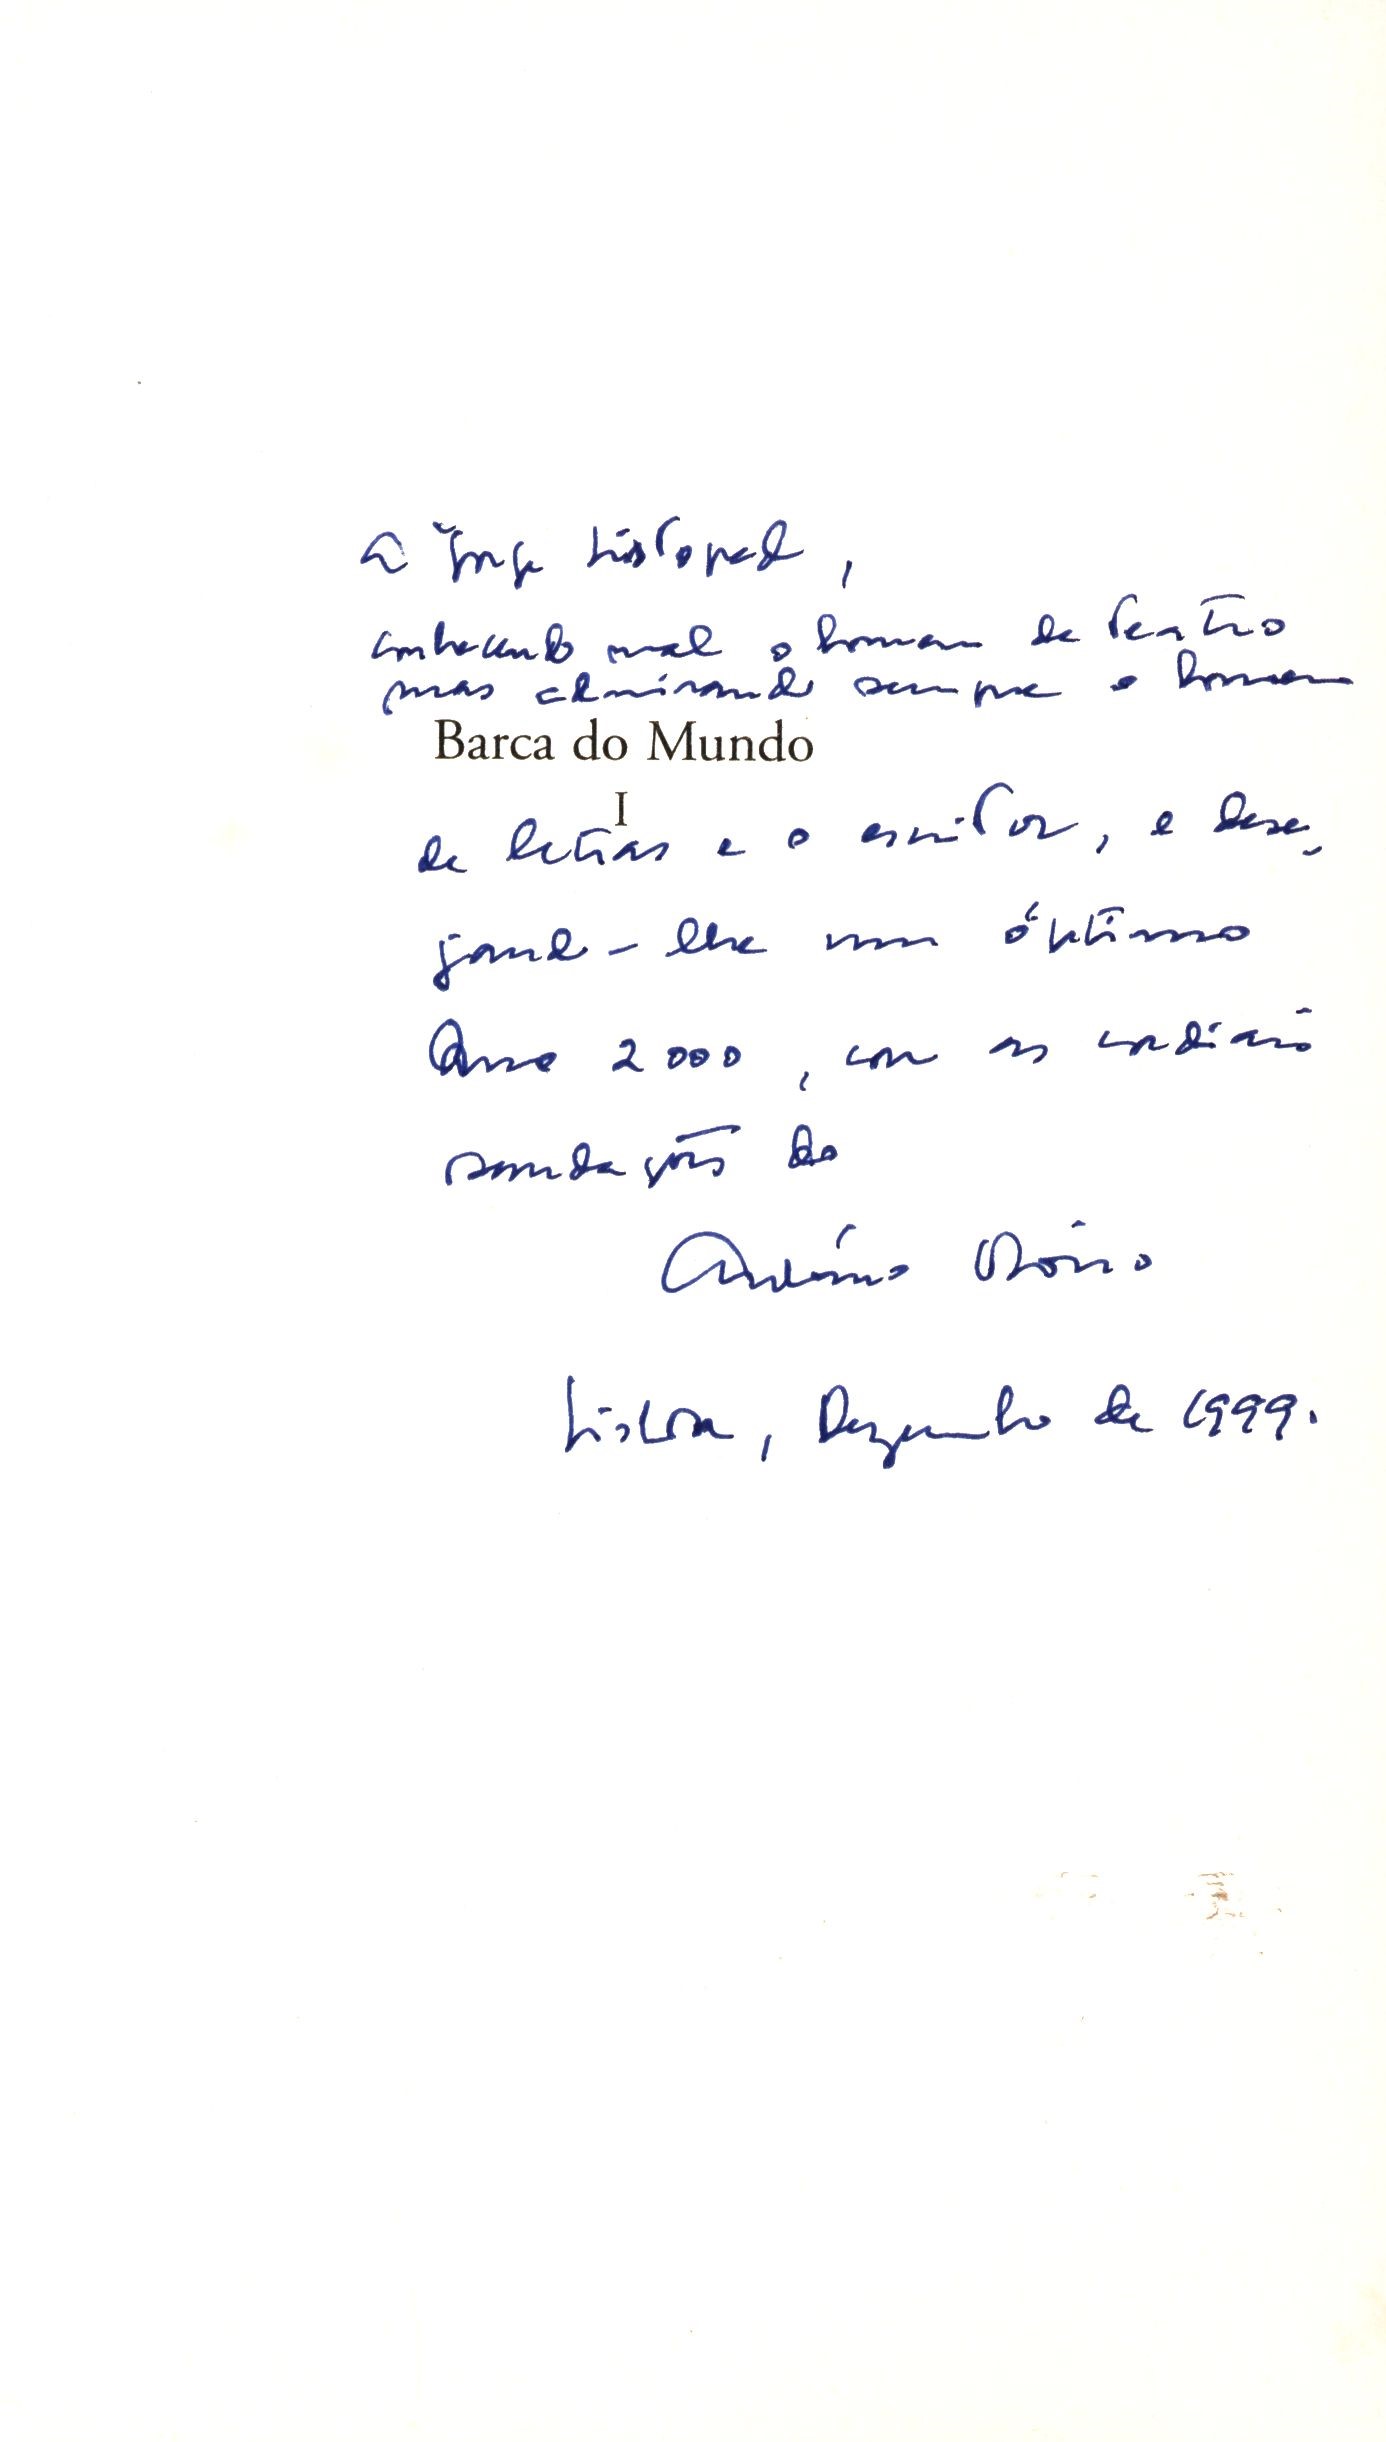 A Jorge Listopad,
conhecendo mal o homem de teatro
mas admirando sempre o homem
Barca do Mundo
I
de letras e o escritor, e dese-
jando-lhe um óptimo
Ano 2000, com as cordiais
saudações do
António Osório
Lisboa, Dezembro de 1999.